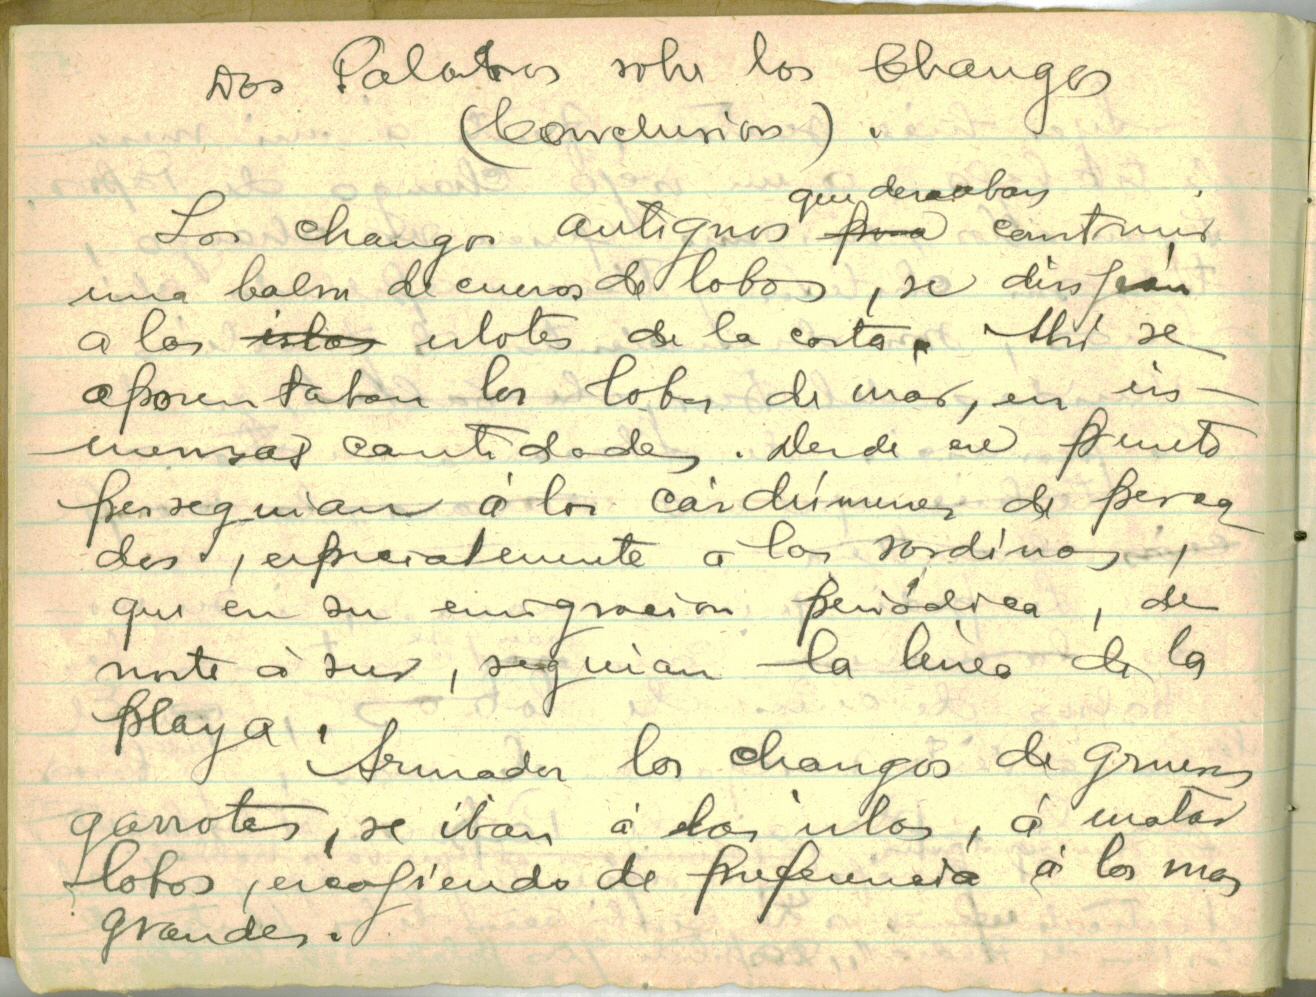 Dos Palabras sobre los Changos
(Conclusion).
que deseaban
Los changos antiguos para construir
una balsa de cueros de lobos, se dirijian
a las islas islotes de la costa. Ahi se
aposentaban los lobos de mar, en in-
mensas cantidades. Desde ese punto
perseguian á los cardúmenes de pesca
dos, especialmente a las sardinas,
que en su emigracion periódica, de
norte á sur, seguian la linea de la
playa. Armados los changos de gruesos
garrotes, se iban á las islas, á matar
lobos, escojiendo de preferencia á los mas
grandes.